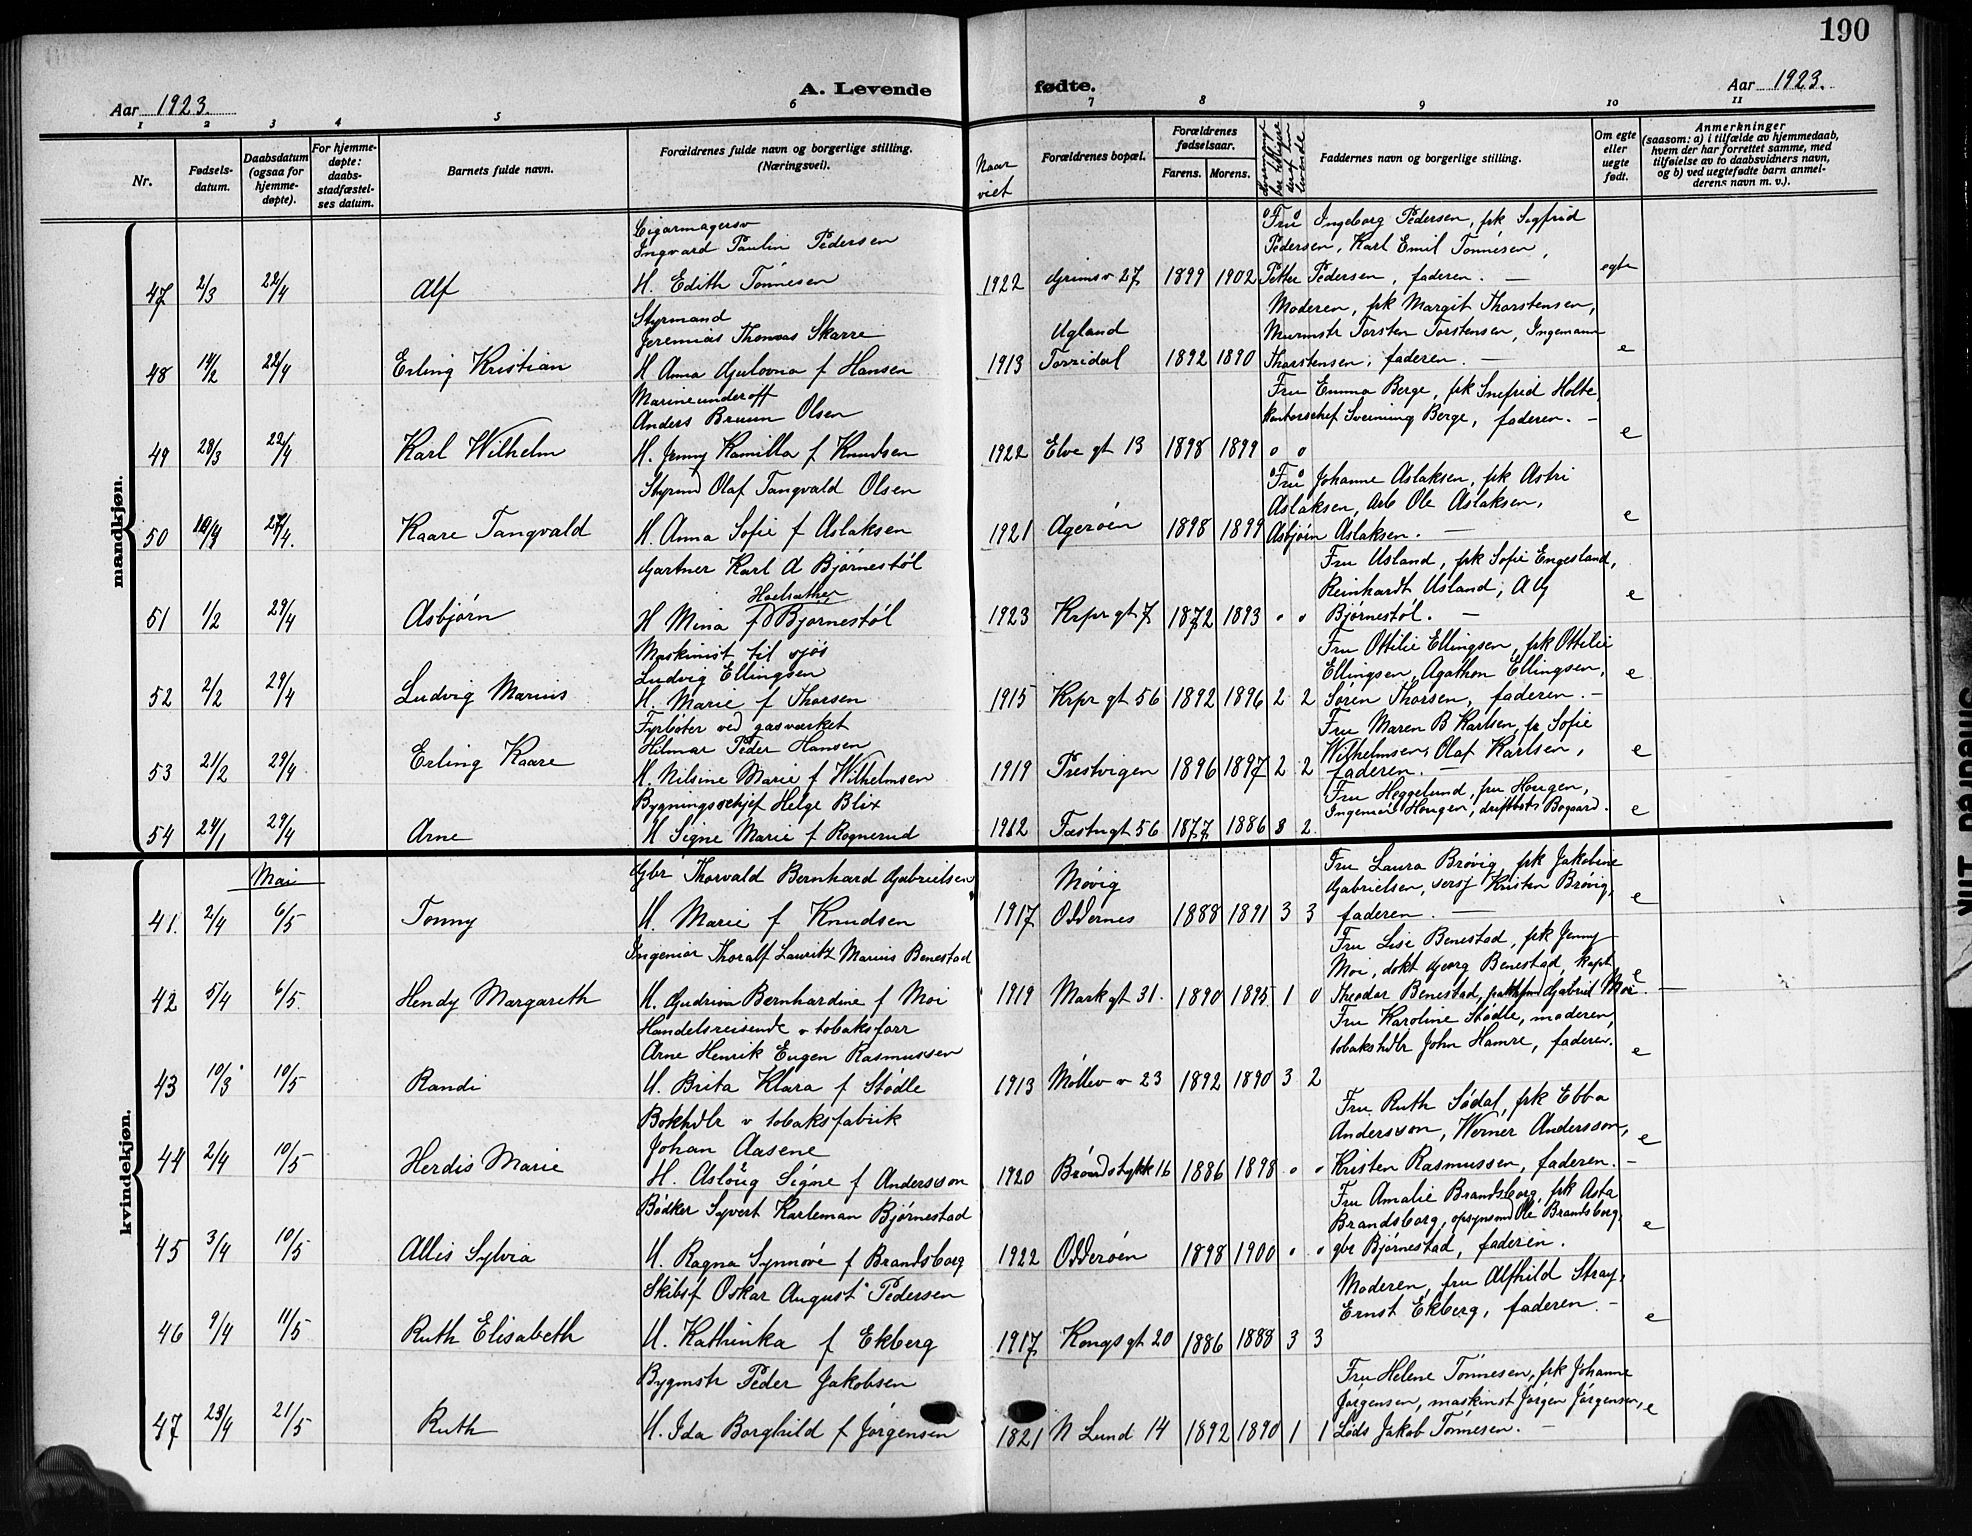 190
Aar 1923.
A. Levende
fødte.
Aar 1923.
1 2 3 4 5 6 7 8 9 10 11
Nr.
Fødsels-
datum.
Daabsdatum
(ogsaa for
hjemme-
døpte).
For hjemme-
døpte:
daabs-
stadfæstel-
ses datum.
Barnets fulde navn.
Forældrenes fulde navn og borgerlige stilling.
(Næringsvei).
Naar
viet
Forældrenes bopæl.
Forældrenes
fødselsaar.
Farens. Morens.
Faddernes navn og borgerlige stilling.
Om egte
eller
uegte
født.
Anmerkninger
(saasom: a) i tilfælde av hjemmedaab,
hvem der har forrettet samme, med
tilføielse av to daabsvidners navn,
og b) ved uegtefødte barn anmel-
derens navn m. v.).
mandkjøn.
Cigarmagersv
Ingvard Paulin Pedersen
47 2/3 22/4 Alf H. Edith Tønnesen 1922 Grimsv 27 1899 1902
Fru Ingeborg Pedersen, frk Sigfrid
Pedersen, Karl Emil Tønnesen,
Petter Pedersen, faderen. — egte
Styrmand
Jeremias Thomas Skarre
48 14/2 22/4 Erling Kristian H Anna Gulovna f Hansen 1913 Ugland
Torridal 1892 1890
Moderen, frk Margit Thorstensen,
Murmstr Torsten Torstensen, Ingemann
Thorstensen, faderen. — e
Marineunderoff
Anders Bruun Olsen
49 28/3 22/4 Karl Wilhelm H. Jenny Kamilla f Knudsen 1922 Elvegt 13 1898 1899 0 0
Fru Emma Berge, frk Snefrid Holte,
Kontorschef Sveinung Berge, faderen. — e
Styrmd Olaf Tangvald Olsen
50 27/4. Kaare Tangvald H. Anna Sofie f Aslaksen 1921 Agerøen 1898 1899 0 0
Fru Johanne Aslaksen, frk Astri
Aslaksen, Arb Ole Aslaksen,
Asbjørn Aslaksen. — e
Gartner Karl A Bjørnestøl
51 1/2 29/4 Asbjørn H Mina f Bjørnestøl 1923 Krpr gt 7 1872 1893 0 0
Fru Usland, frk Sofie Engesland,
Reinhardt Usland, A G
Bjørnestøl. — e
Maskinist til sjøs
Ludvig Ellingsen
52 2/2 29/4 Ludvig Marius H. Marie f Thorsen 1915 Krpr gt 56 1892 1896 2 2
Fru Ottilie Ellingsen, frk Ottilie
Ellingsen, Agathon Ellingsen,
Søren Thorsen, faderen. — e
Fyrbøter ved gasverket
Hilmar Peder Hansen
53 21/2 29/4 Erling Kaare H. Nilsine Marie f Wilhelmsen 1919 Prestvigen 1896 1897 2 2
Fru Maren B Karlsen, fr Sofie
Wilhelmsen, Olaf Karlsen,
faderen. — e
Bygningschef Helge Blix
54 24/1 29/4 Arne H Signe Marie f Rognerud 1912 Fæstngt 56 1877 1886 3 2
Fru Heggelund, fru Hougen,
Ingeniør Hougen, driftbest Bogaard. e
kvindekjøn.
Mai
Gbr Thorvald Bernhard Gabrielsen
41. 2/4 6/5 Tonny H. Marie f Knudsen 1917 Møvig
Oddernes 1888 1891 3 3
Fru Laura Brøvig, frk Jakobine
Gabrielsen, sersj Kristen Brøvig,
faderen. — e
Ingeniør Thoralf Lauritz Marius Benestad
42 5/4 6/5 Hendy Margareth H. Gudrun Bernhardine f Moi 1919 Markgt 31. 1890 1895 1 0
Fru Lise Benestad, frk Jenny
Moi, dokt Georg Benestad, kapt
Theodor Benestad, Gabriel Moi. — e
Handelsreisende v tobaksfarr
Arne Henrik Eugen Rasmussen
43 10/3 10/5 Randi H. Brita Klara f Stødle 1913 Møllev v 23 1892 1890 3 2
Fru Karoline Stødle, moderen,
tobakshdlr John Hamre, faderen. e
Bokhdlr v tobaksfabrik
Johan Aasene
44 2/4 10/5 Herdis Marie H. Aslaug Signe f Andersson 1920 Brøndstykk 16 1886 1898 0 0
Fru Ruth Sødal, frk Ebba
Andersson, Werner Andersson,
Kristen Rasmussen, faderen. — e
Bødker Syvert Karleman Bjørnestad
45 3/4 10/5 Allis Sylvia H. Ragna Synnøve f Brandsborg 1922 Odderøen 1898 1900 0 0
Fru Amalie Brandsborg, frk Asta
Brandsborg, opsynsmd Ole Brandsborg,
gbr Bjørnestad, faderen. e
Skibsf Oskar August Pedersen
46 9/4 11/5 Ruth Elisabeth H. Kathinka f Ekberg 1917 Kongsgt 20 1886 1888 3 3
Moderen, fru Alfhild Stray,
Ernst Ekberg, faderen. — e
Bygmstr Peder Jakobsen
47 23/4 21/5 Ruth H. Ida Borghild f Jørgensen 1821 N Lund 14 1892 1890 1 1
Fru Helene Tønnesen, frk Johanne
Jørgensen, maskinist Jørgen Jørgensen,
Lods Jakob Tønnesen. — e